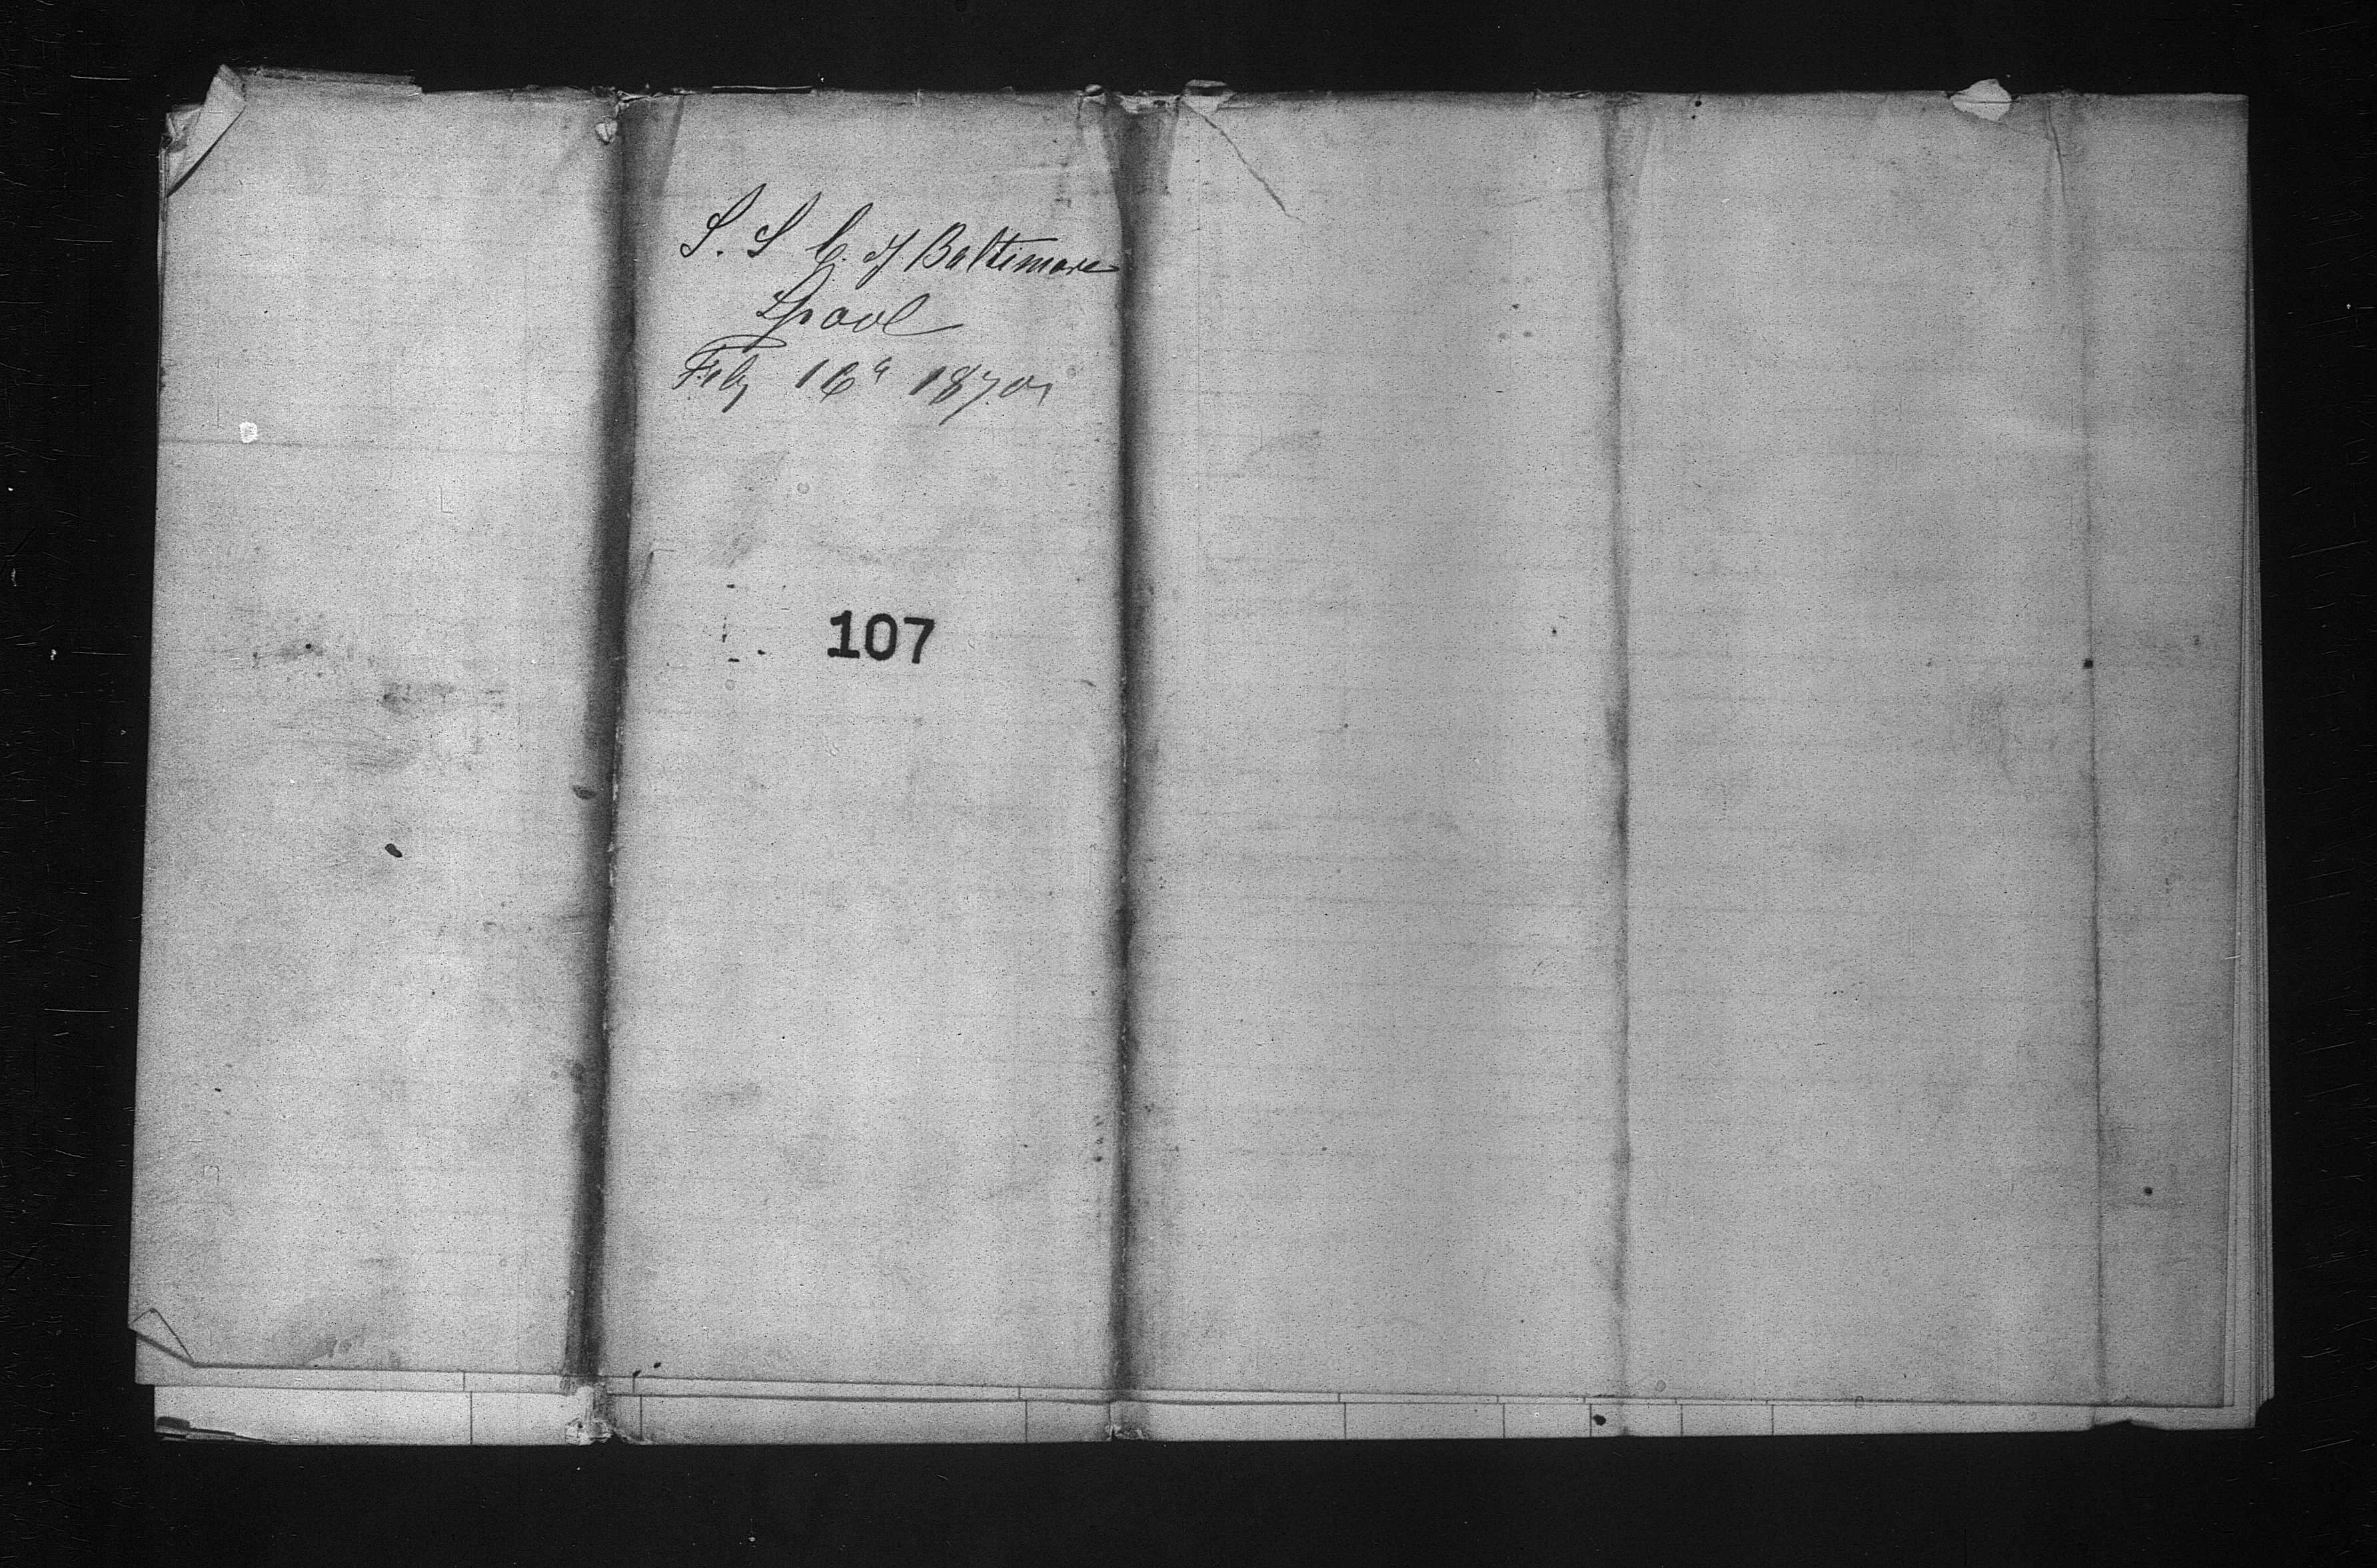 S. S C. of Baltimore
Lpool
Feby 16" 1870
107